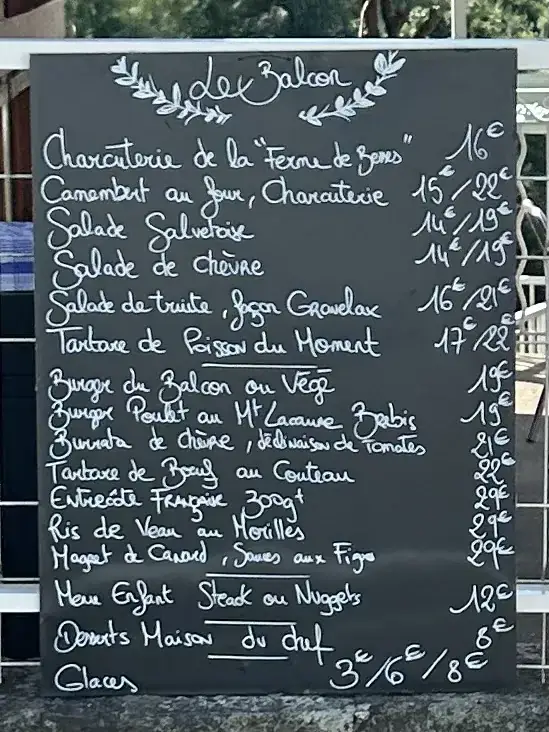 Le Balcon
Charcuterie de la "Ferme de Berres" 16€
Camembert au four, Charcuterie 15€/22€
Salade Salvetoise 14€/19€
Salade de chèvre 14€/19€
Salade de truite, façon Gravelax 16€/21€
Tartare de Poisson du Moment 17€/22€
Burger du Balcon ou Végé 19€
Burger Poulet au Mt Lacaune Brebis 19€
Burrata de chèvre, déclinaison de Tomates 21€
Tartare de Bœuf au Couteau 22€
Entrecôte Française 300gr 29€
Ris de Veau au Morilles 29€
Magret de Canard, Sauces aux Figues 29€
Menu Enfant Steack ou Nuggets 12€
Desserts Maison du chef 8€
Glaces 3€/6€/8€